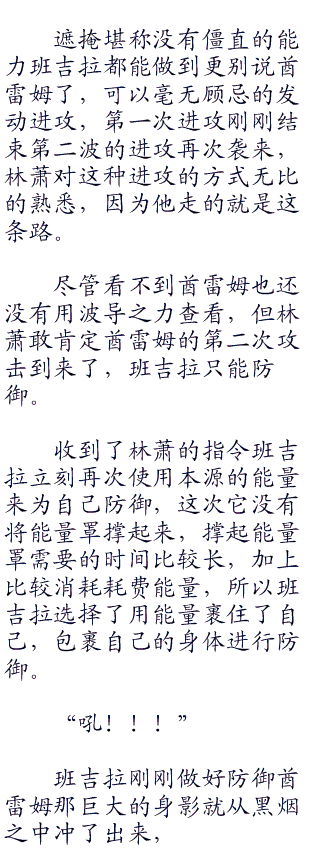 遮掩堪称没有僵直的能
力班吉拉都能做到更别说酋
雷姆了，可以毫无顾忌的发
动进攻，第一次进攻刚刚结
束第二波的进攻再次袭来，
林萧对这种进攻的方式无比
的熟悉，因为他走的就是这
条路。
尽管看不到酋雷姆也还
没有用波导之力查看，但林
萧敢肯定酋雷姆的第二次攻
击到来了，班吉拉只能防
御。
收到了林萧的指令班吉
拉立刻再次使用本源的能量
来为自己防御，这次它没有
将能量罩撑起来，撑起能量
罩需要的时间比较长，加上
比较消耗耗费能量，所以班
吉拉选择了用能量裹住了自
己，包裹自己的身体进行防
御。
“吼！！！”
班吉拉刚刚做好防御酋
雷姆那巨大的身影就从黑烟
之中冲了出来，